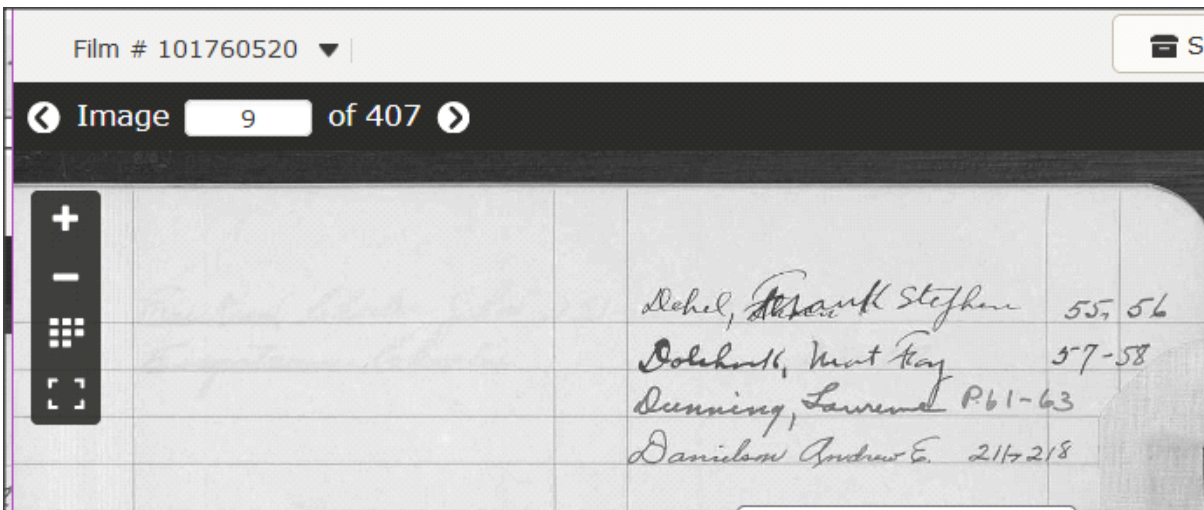 Film # 101760520
S
Image 9 of 407
Dehel, Frank Stephen 55, 56
Mat 57-58
Dunning, Lawrence P.61-63
Danielson Andrew E. 218